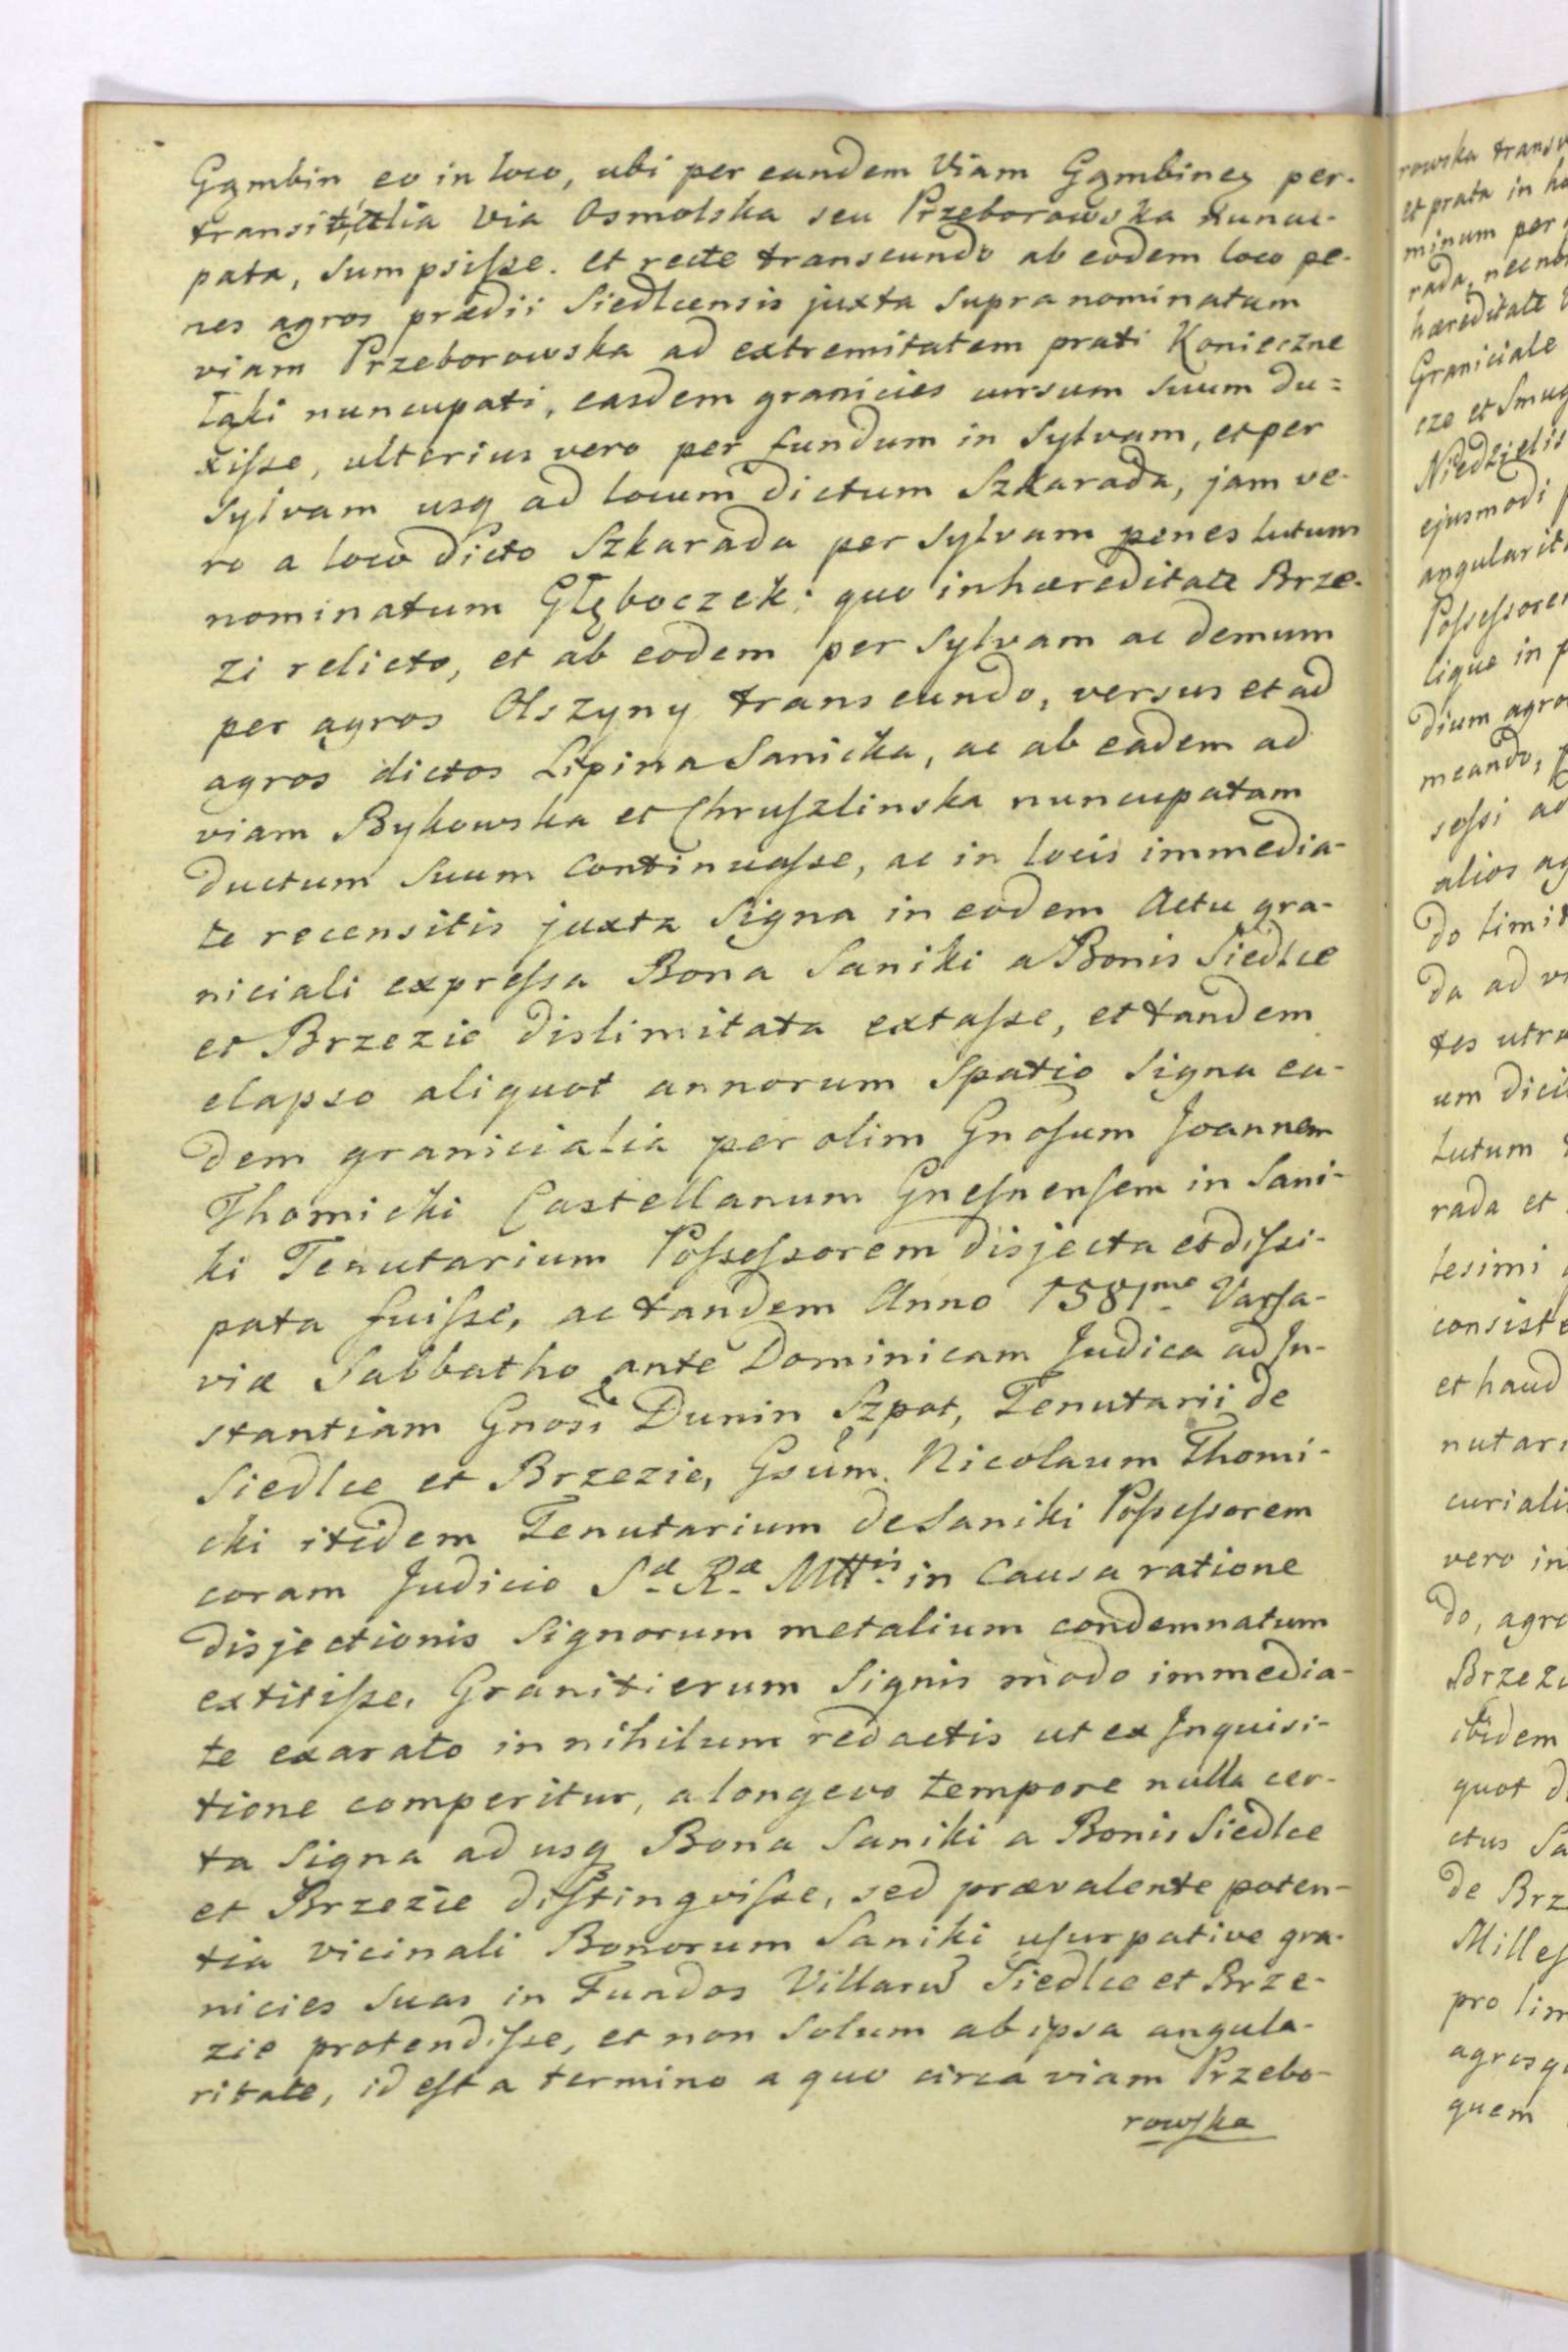 Gąmbin eo in loco, ubi per eandem Viam Gąmbineg per-
transit, alia via Osmolska seu Przeborowska nuncu-
pata, sumpsiſse. et recte transeundo ab eodem loco pe-
nes agros prædii Siedlcensis juxta supra nominatam
viam Przeborowska ad extremitatem prati Konieczne
Łąki nuncupati, easdem granicies cursum suum du=
xiſse, ulterius vero per fundum in Sylvam, et per
Sylvam usq ad locum dictum Szkarada, jam ve-
ro a loco dicto Szkarada per sylvam penes lutum
nominatum Głęboczek; quo in hæreditate Brze-
zi relicto, et ab eodem per Sylvam ac demum
per agros Olszyny transeundo, versus et ad
agros dictos Lipina Sanicka, ac ab eadem ad
viam Bykowska et Chruſzlinska nuncupatam
ductum suum continuaſse, ac in locis immedia-
te recensitis juxta Signa in eodem Actu gra-
niciali expreſsa Bona Saniki a Bonis Siedlce
et Brzezie dislimitata extaſse, et tandem
elapso aliquot annorum Spatio Signa ea-
dem granicialia per olim Gnoſum Joannem
Thomicki Castellanum Gneſnenſem in Sani-
ki Tenutarium Poſseſsorem disjecta et diſsi-
pata fuiſse, ac tandem Anno 1581mo Varſa-
viæ Sabbatho ante Dominicam Judica ad In-
stantiam Gnosi Dunin Szpot, Tenutarii de
Siedlce et Brzezie, Gsum. Nicolaum Thomi-
cki itidem Tenutarium de Saniki Poſseſsorem
coram Judicio Sæ Ræ Mttis in Causa ratione
disjectionis Signorum metalium condemnatum
extitiſse. Granitierum Signis modo immedia-
te exarato in nihilum redactis ut ex Inquisi-
tione comperitur, a longevo tempore nulla cer-
ta Signa ad usq Bona Saniki a Bonis Siedlce
et Brzezie diſtingviſse, sed prævalente poten-
tia vicinali Bonorum Saniki uſurpative gra-
nicies suas in Fundos Villarum Siedlce et Brze-
zie protendiſse, et non solum ab ipsa angula-
ritate, id eſt a termino a quo circa viam Przebo-
rowſka

rowska transv
et prata in hæ
minum per
rada, necno
hæreditate
Graniciale
cze et Smug
Niedzielis
ejusmodi
angularit
Poſseſsorem
lique in p
dium agro
meando,
seſsi ad
alios ag
do limit
da ad vi
tes utra
um dici
lutum
rada et
tesimi
consiste
et haud
nutar
curiali
vero in
do, agro
Brzez
ibidem
quot d
ctus Sa
de Brz
Milleſ
pro lim
agrosq
quem